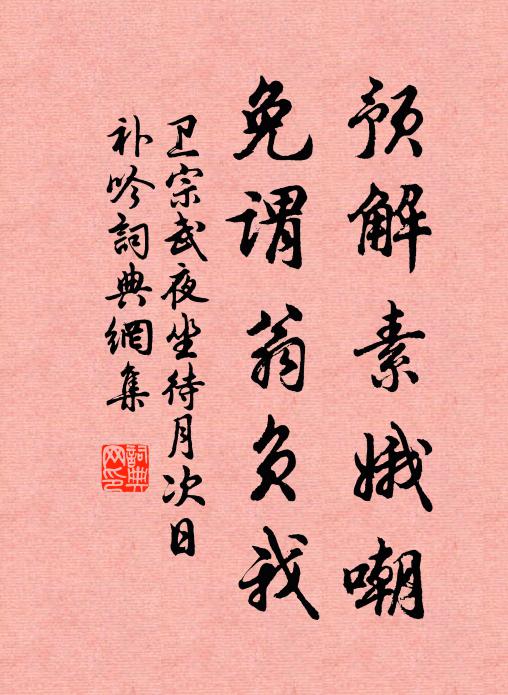 预解素娥嘲
免谓翁负我
卫宗武夜坐待月次日
补吟词典網集
詞典
网印